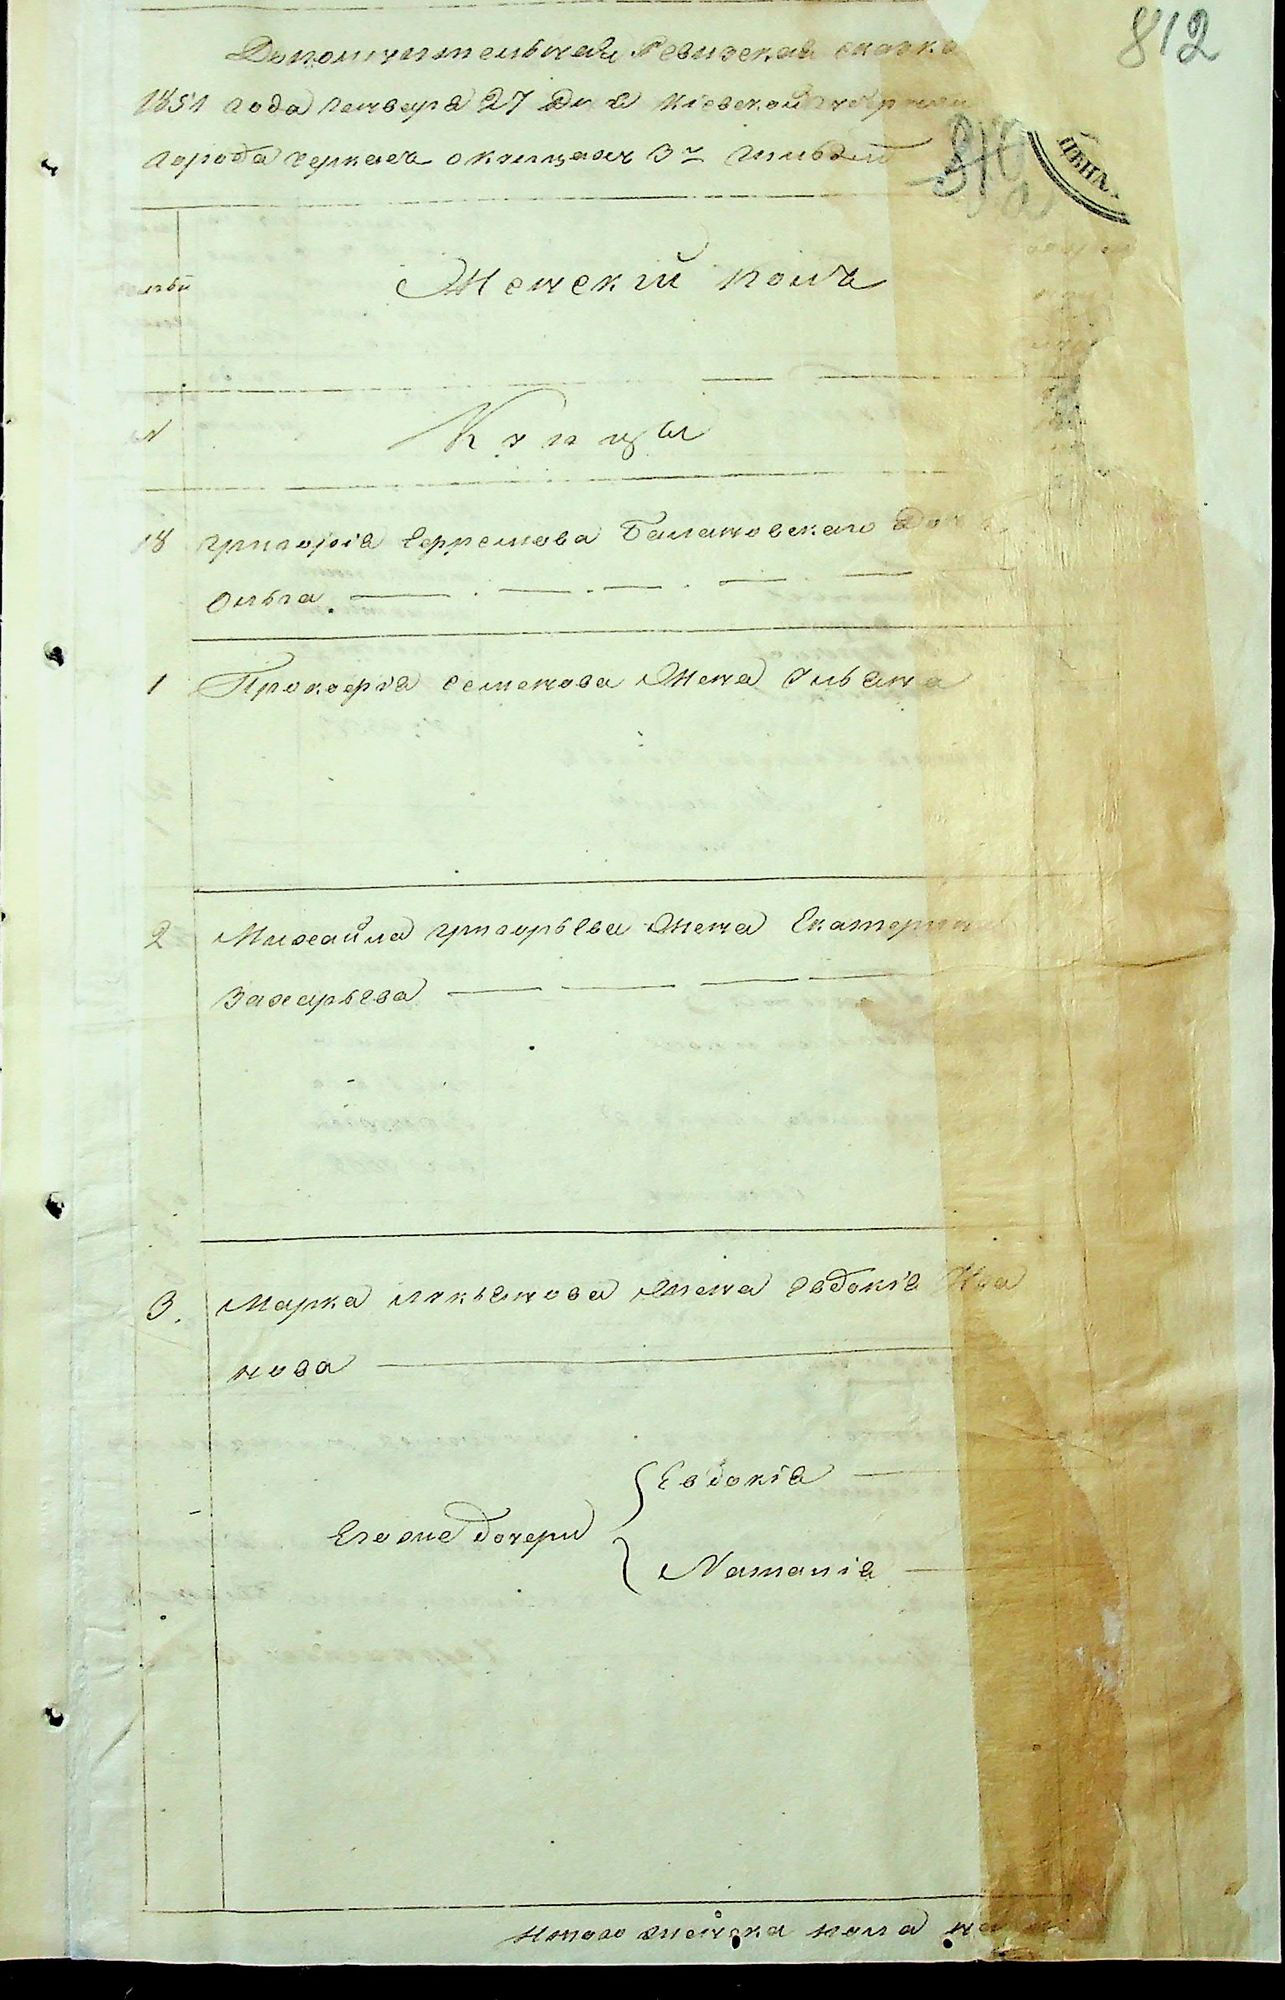 812
Дополнительная Ревизская сказка
1851 года Генваря 27 дня Кіевской губерніи
города Черкасъ о купцахъ 3й гильдіи
ЦѢНА
Женскій полъ
Купцы
18 Григорія Ефремова Балановскаго дочь
Ольга
1 Прокофія Семенова Жена Ульяна
2 Михайла Григорьева Жена Екатерина
Захарьева
3. Марка Лукьянова Жена Евдокія Ива
нова
Евдокія
Его же дочери
Наталія
Итого женска пола на